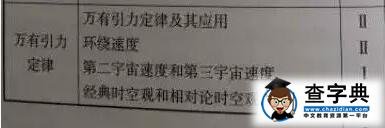 万有引力定律
万有引力定律及其应用 Ⅱ
环绕速度 Ⅱ
第二宇宙速度和第三宇宙速度 Ⅰ
经典时空观和相对论时空观
查字典
www.chazidian.com
中文教育资源第一平台